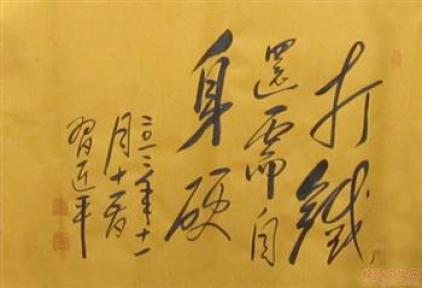 打鐵
還需自
身硬
二〇一二年十一
月十五日
習近平